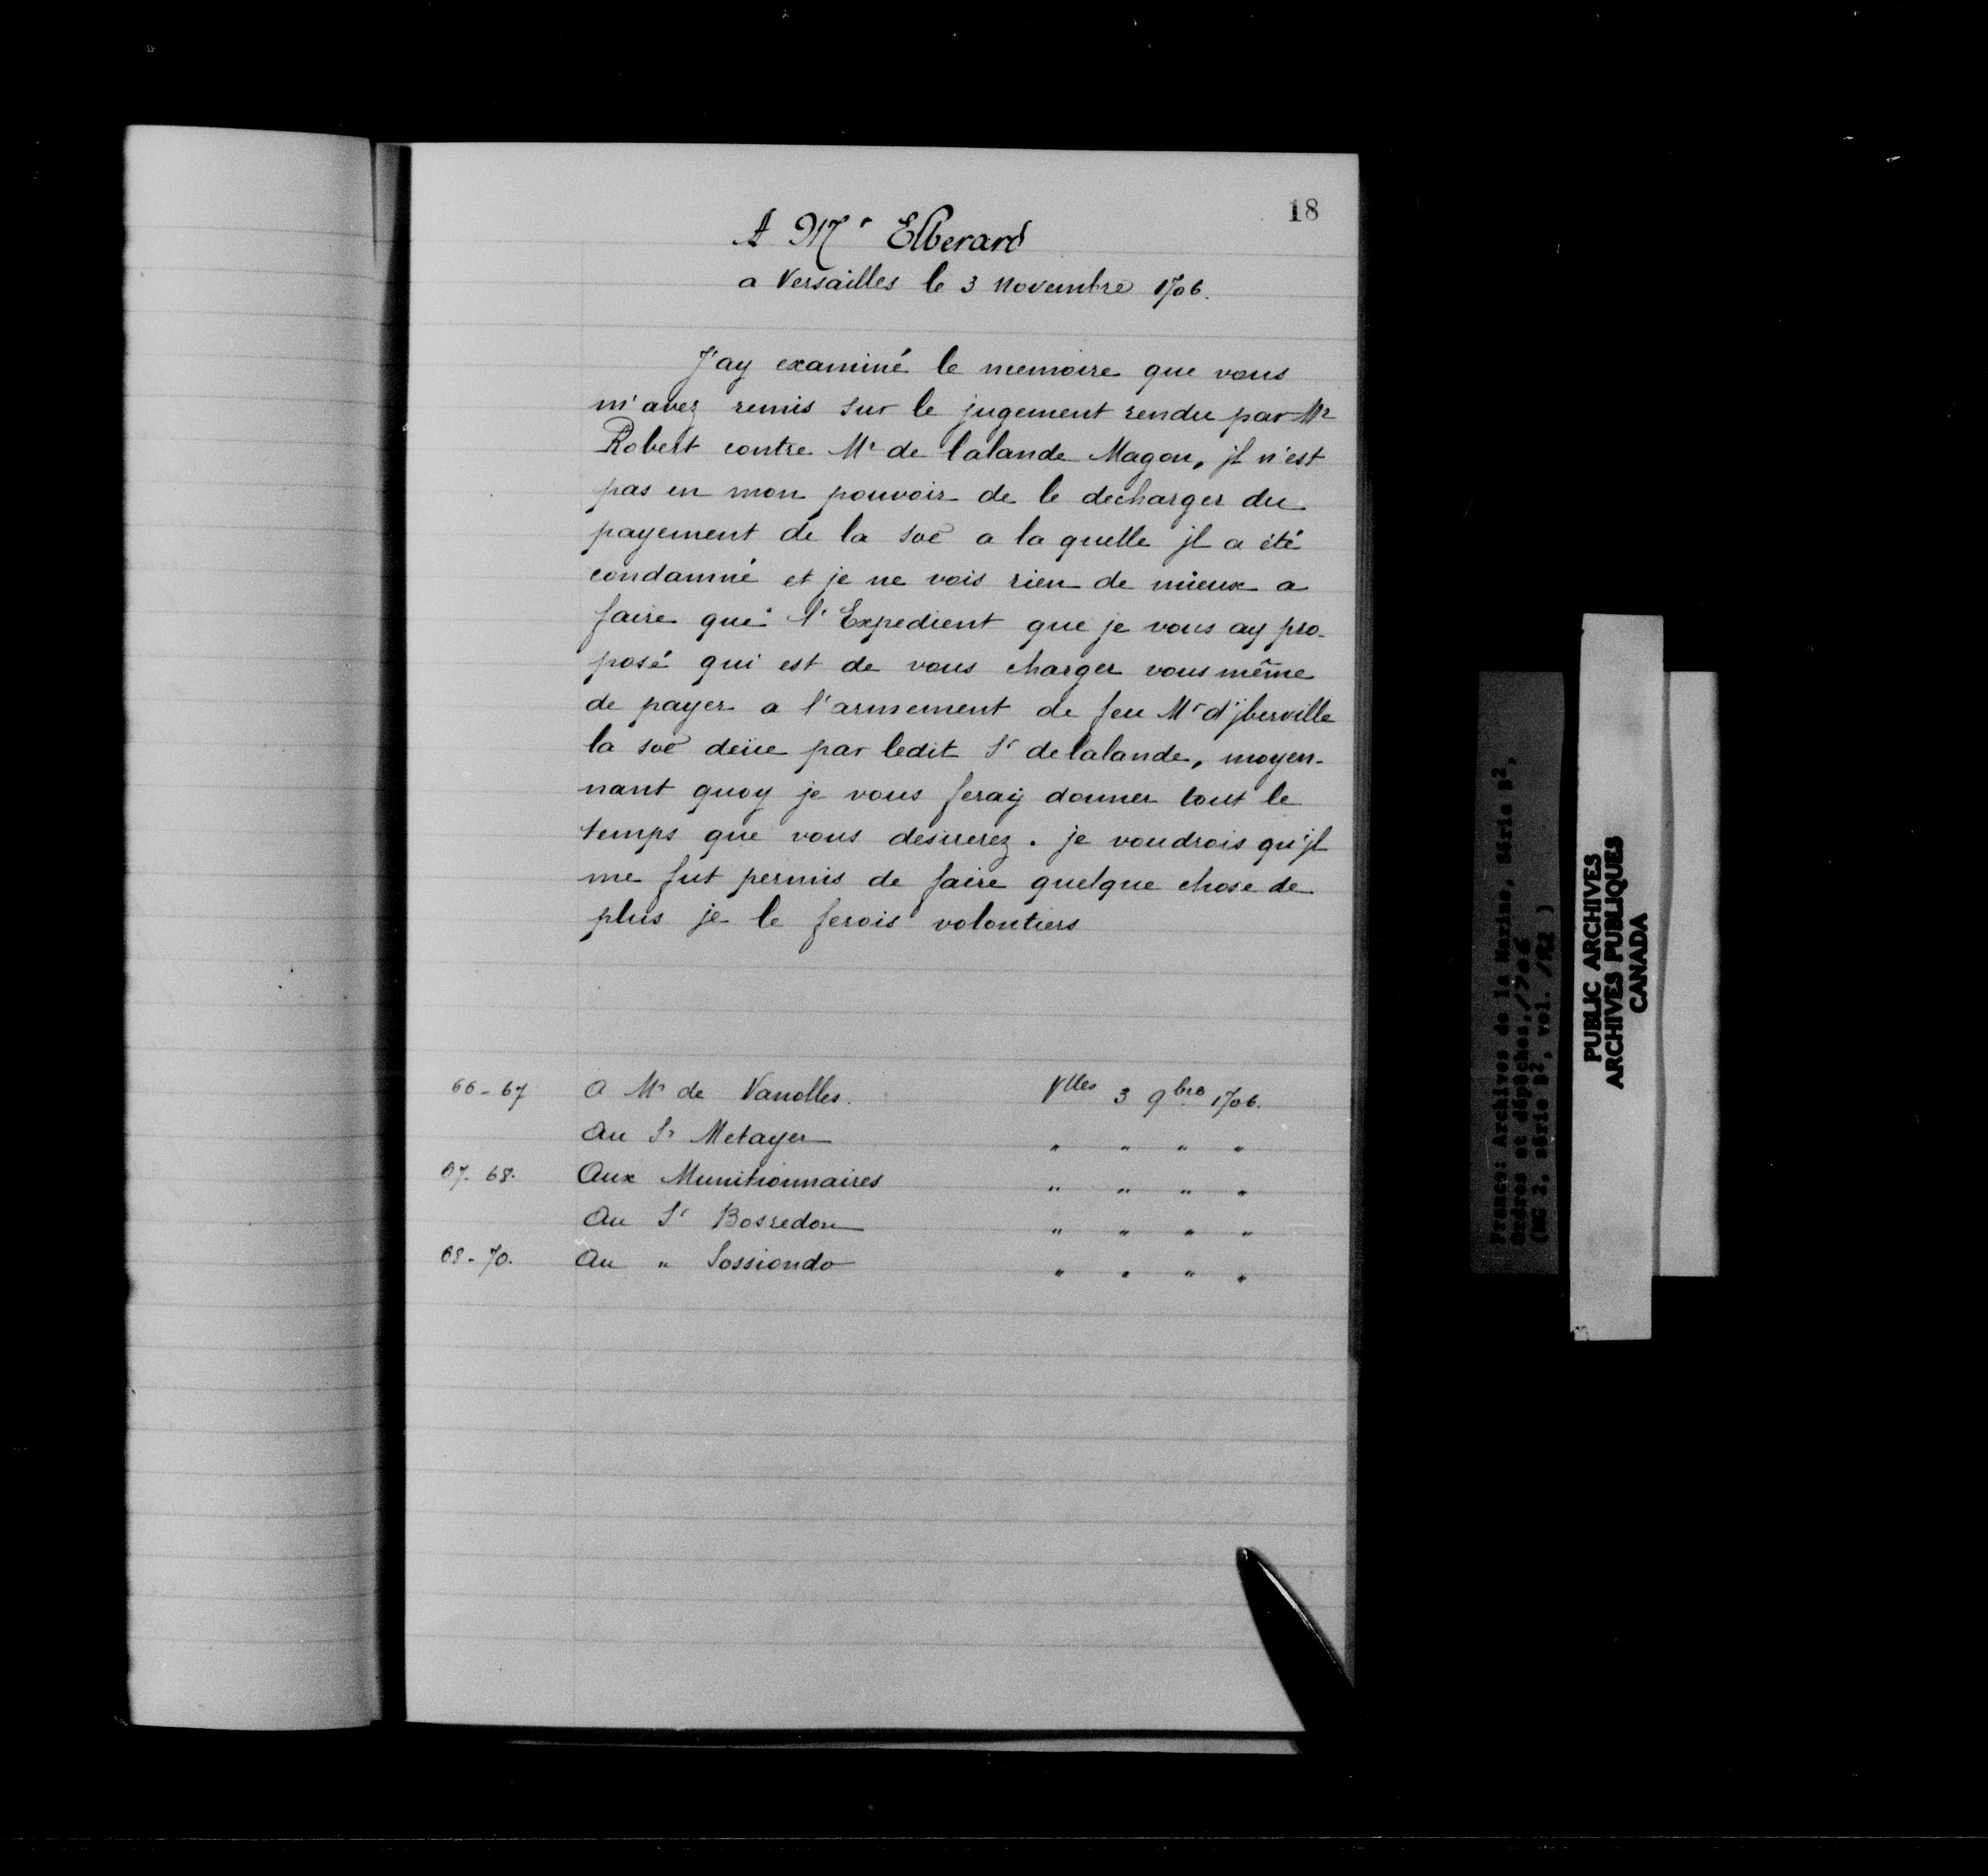 18
A Mr Elberard
a Versailles le 3 Novembre 1706.
J'ay examiné le memoire que vous
m'avez remis sur le jugement rendu par Mr
Robert contre Mr de lalande Magon, jl n'est
pas en mon pouvoir de le decharger du
payement de la soẽ a la quelle jl a été
condamné et je ne vois rien de mieux a
faire que l'Expedient que je vous ay pro-
posé qui est de vous charger vous même
de payer a l'armement de feu Mr d'jberville
la soẽ deüe par ledit Sr de lalande, moyen-
nant quoy je vous feraÿ donner tout le
temps que vous desirerez. je voudrois qu'jl
me fut permis de faire quelque chose de
plus je le ferois volontiers
66-67 A Mr de Vanolles. Vlles 3 9bre 1706.
Au Sr Metayer " " " "
67-68. Aux Munitionnaires " " " "
Au Sr Bosredon " " " "
68-70. Au " Sossiondo " " " "
France: Archives de la Marine, Série B2,
Ordres et dépêches, 1706
(MG 2, série B2, vol. 192)
PUBLIC ARCHIVES
ARCHIVES PUBLIQUES
CANADA